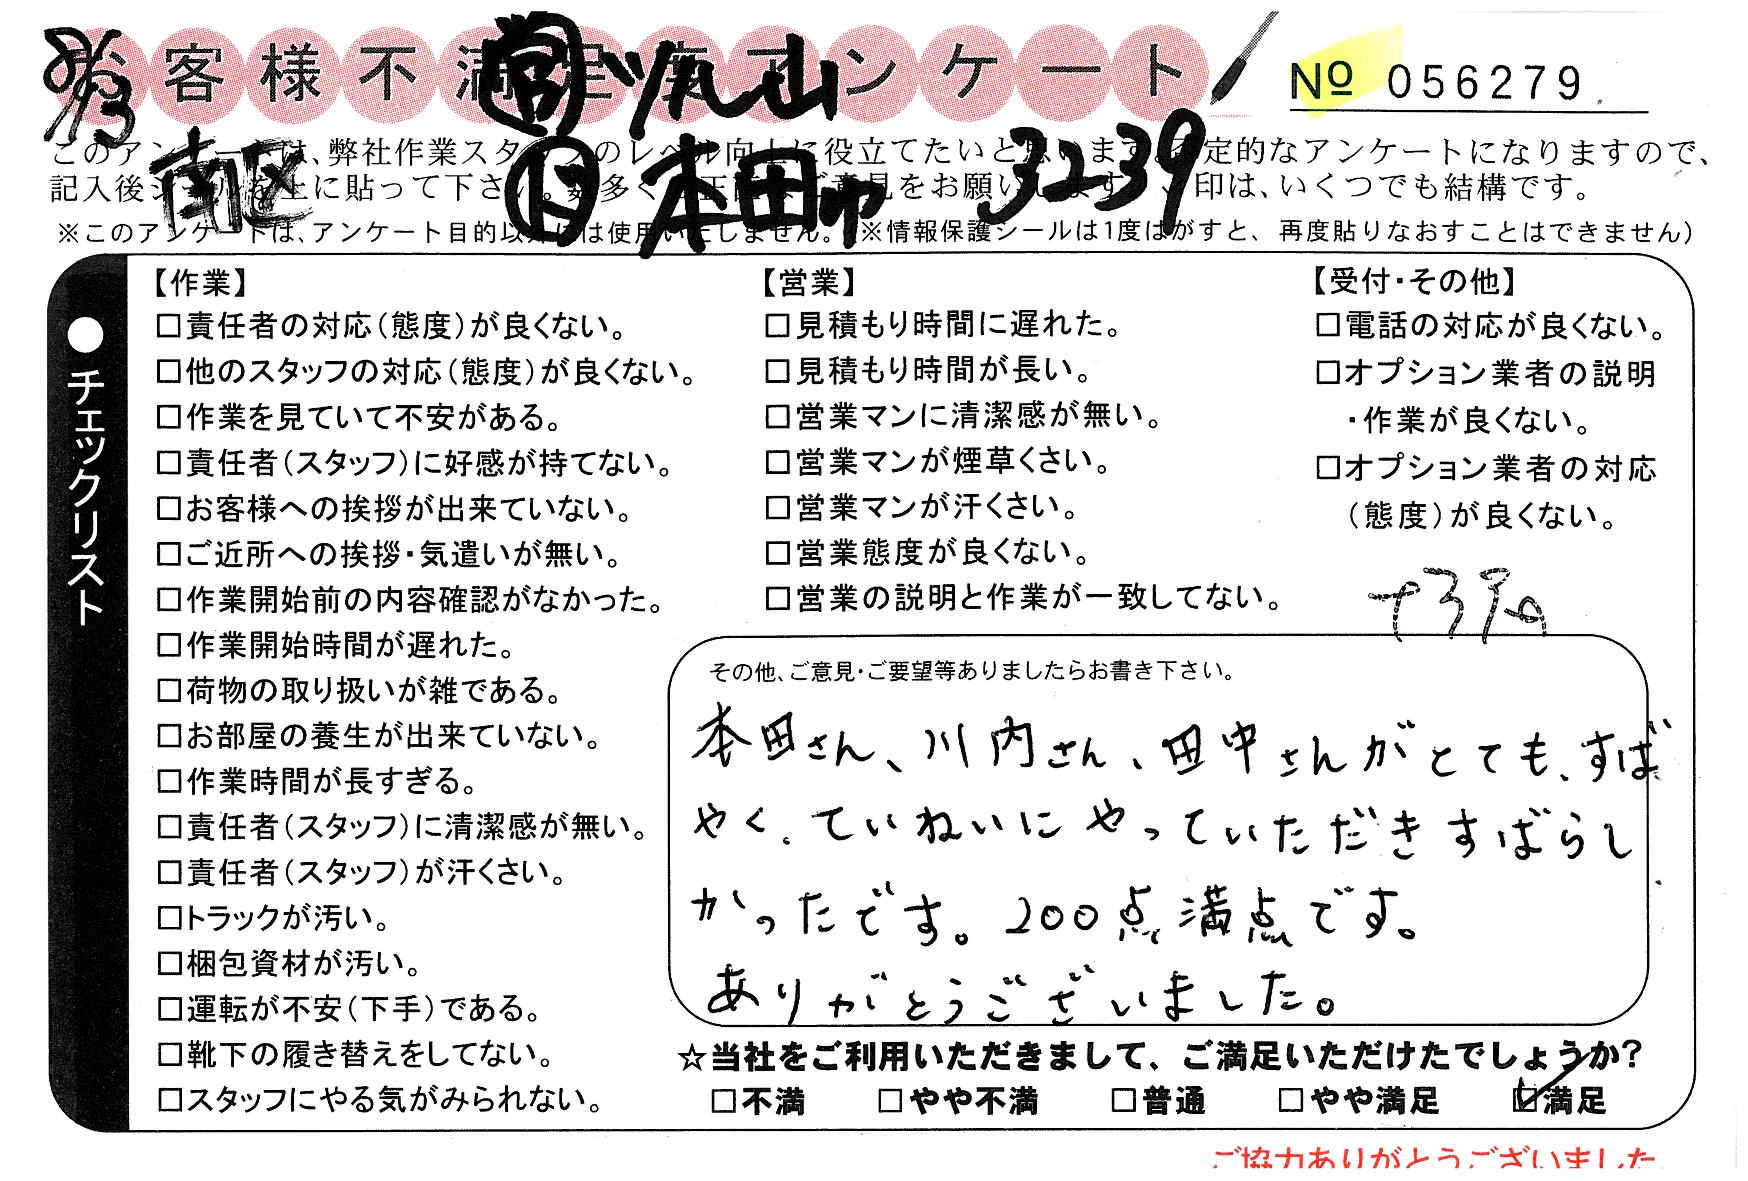 お客様不満足度アンケート
8/13
営 丸山
№ 056279
南区
作 本田 3239
このアンケートは、弊社作業スタッフのレベル向上に役立てたいと思います。否定的なアンケートになりますので、
記入後シールを上に貼って下さい。数多く
ご意見をお願いします
印は、いくつでも結構です。
※このアンケートは、アンケート目的以外には使用いたしません。(※情報保護シールは1度はがすと、再度貼りなおすことはできません)
●チェックリスト
【作業】
□責任者の対応(態度)が良くない。
□他のスタッフの対応(態度)が良くない。
□作業を見ていて不安がある。
□責任者(スタッフ)に好感が持てない。
□お客様への挨拶が出来ていない。
□ご近所への挨拶・気遣いが無い。
□作業開始前の内容確認がなかった。
□作業開始時間が遅れた。
□荷物の取り扱いが雑である。
□お部屋の養生が出来ていない。
□作業時間が長すぎる。
□責任者(スタッフ)に清潔感が無い。
□責任者(スタッフ)が汗くさい。
□トラックが汚い。
□梱包資材が汚い。
□運転が不安(下手)である。
□靴下の履き替えをしてない。
□スタッフにやる気がみられない。
【営業】
□見積もり時間に遅れた。
□見積もり時間が長い。
□営業マンに清潔感が無い。
□営業マンが煙草くさい。
□営業マンが汗くさい。
□営業態度が良くない。
□営業の説明と作業が一致してない。
【受付・その他】
□電話の対応が良くない。
□オプション業者の説明
・作業が良くない。
□オプション業者の対応
(態度)が良くない。
その他、ご意見・ご要望等ありましたらお書き下さい。
本田さん、川内さん、田中さんがとても、すば
やく、ていねいにやっていただきすばらし
かったです。200点満点です。
ありがとうございました。
☆当社をご利用いただきまして、ご満足いただけたでしょうか?
□不満 □やや不満 □普通 □やや満足 ☑満足
ご協力ありがとうございました